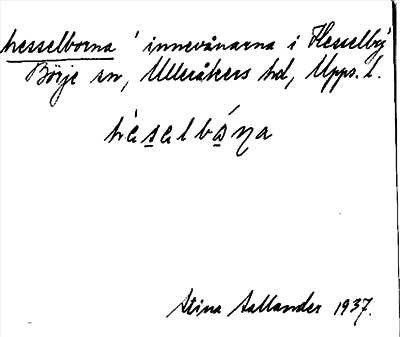 hesselborna 'innevånarna i Hesselby'
Börje sn, Ulleråkers hd, Upps. l.
hèsa̲lbo̲ṇa
Stina Sallander 1937.